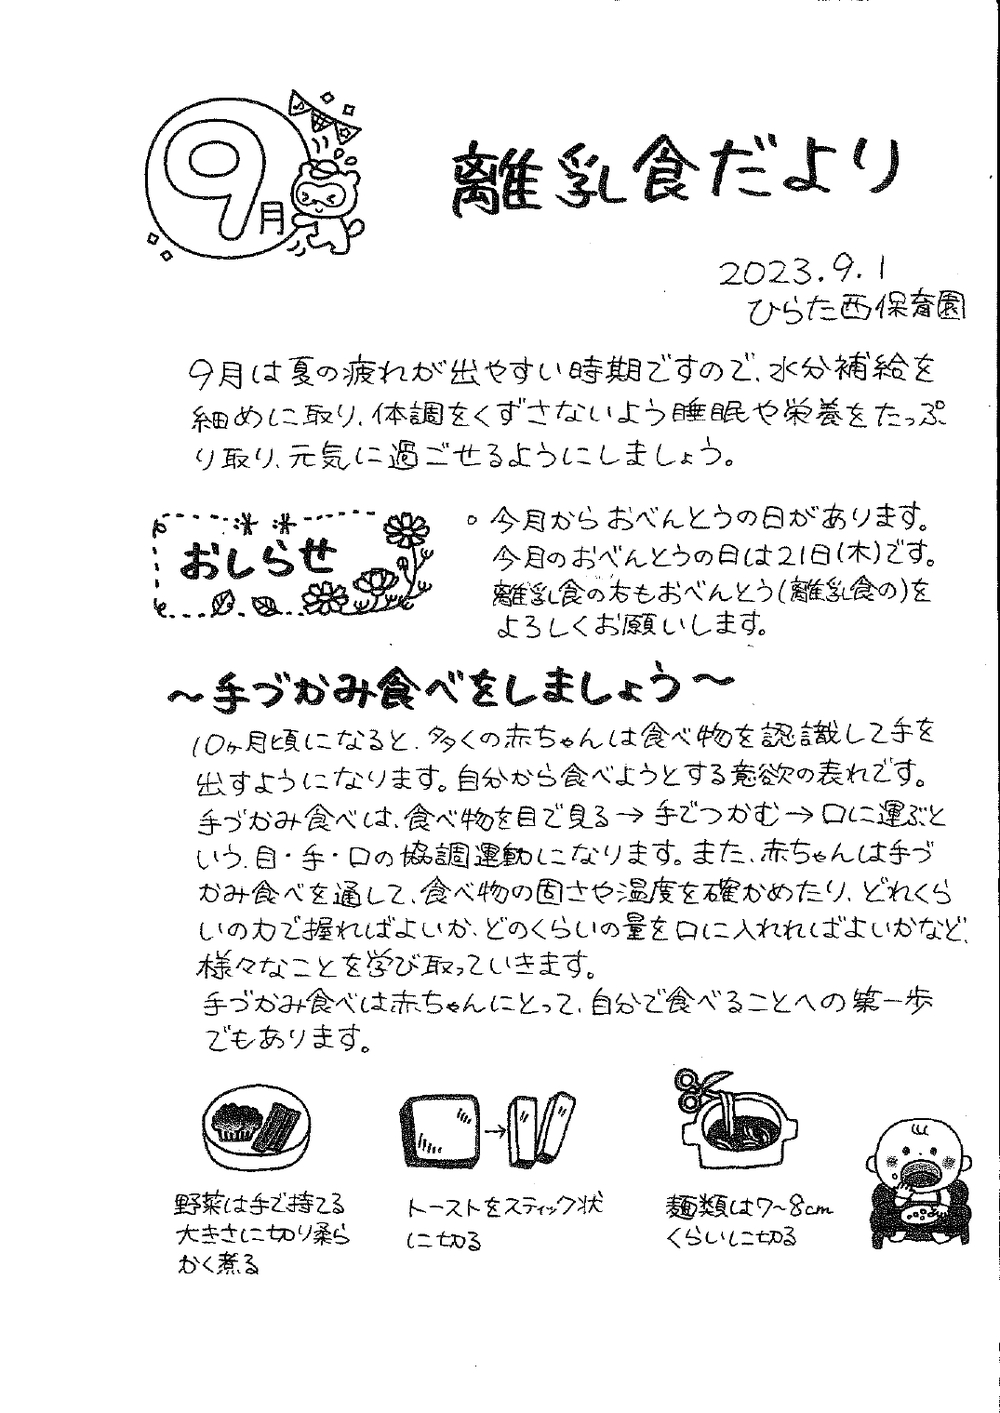 9月
離乳食だより
2023.9.1
ひらた西保育園
9月は夏の疲れが出やすい時期ですので、水分補給を
細めに取り、体調をくずさないよう睡眠や栄養をたっぷ
り取り、元気に過ごせるようにしましょう。
おしらせ
○今月からおべんとうの日があります。
今月のおべんとうの日は21日(木)です。
離乳食の方もおべんとう(離乳食の)を
よろしくお願いします。
〜手づかみ食べをしましょう〜
10ヶ月頃になると、多くの赤ちゃんは食べ物を認識して手を
出すようになります。自分から食べようとする意欲の表れです。
手づかみ食べは、食べ物を目で見る→手でつかむ→口に運ぶと
いう、目・手・口の協調運動になります。また、赤ちゃんは手づ
かみ食べを通して、食べ物の固さや温度を確かめたり、どれくら
いの力で握ればよいか、どのくらいの量を口に入れればよいかなど、
様々なことを学び取っていきます。
手づかみ食べは赤ちゃんにとって、自分で食べることへの第一歩
でもあります。
野菜は手で持てる
大きさに切り柔ら
かく煮る
トーストをスティック状
に切る
麺類は7〜8cm
くらいに切る